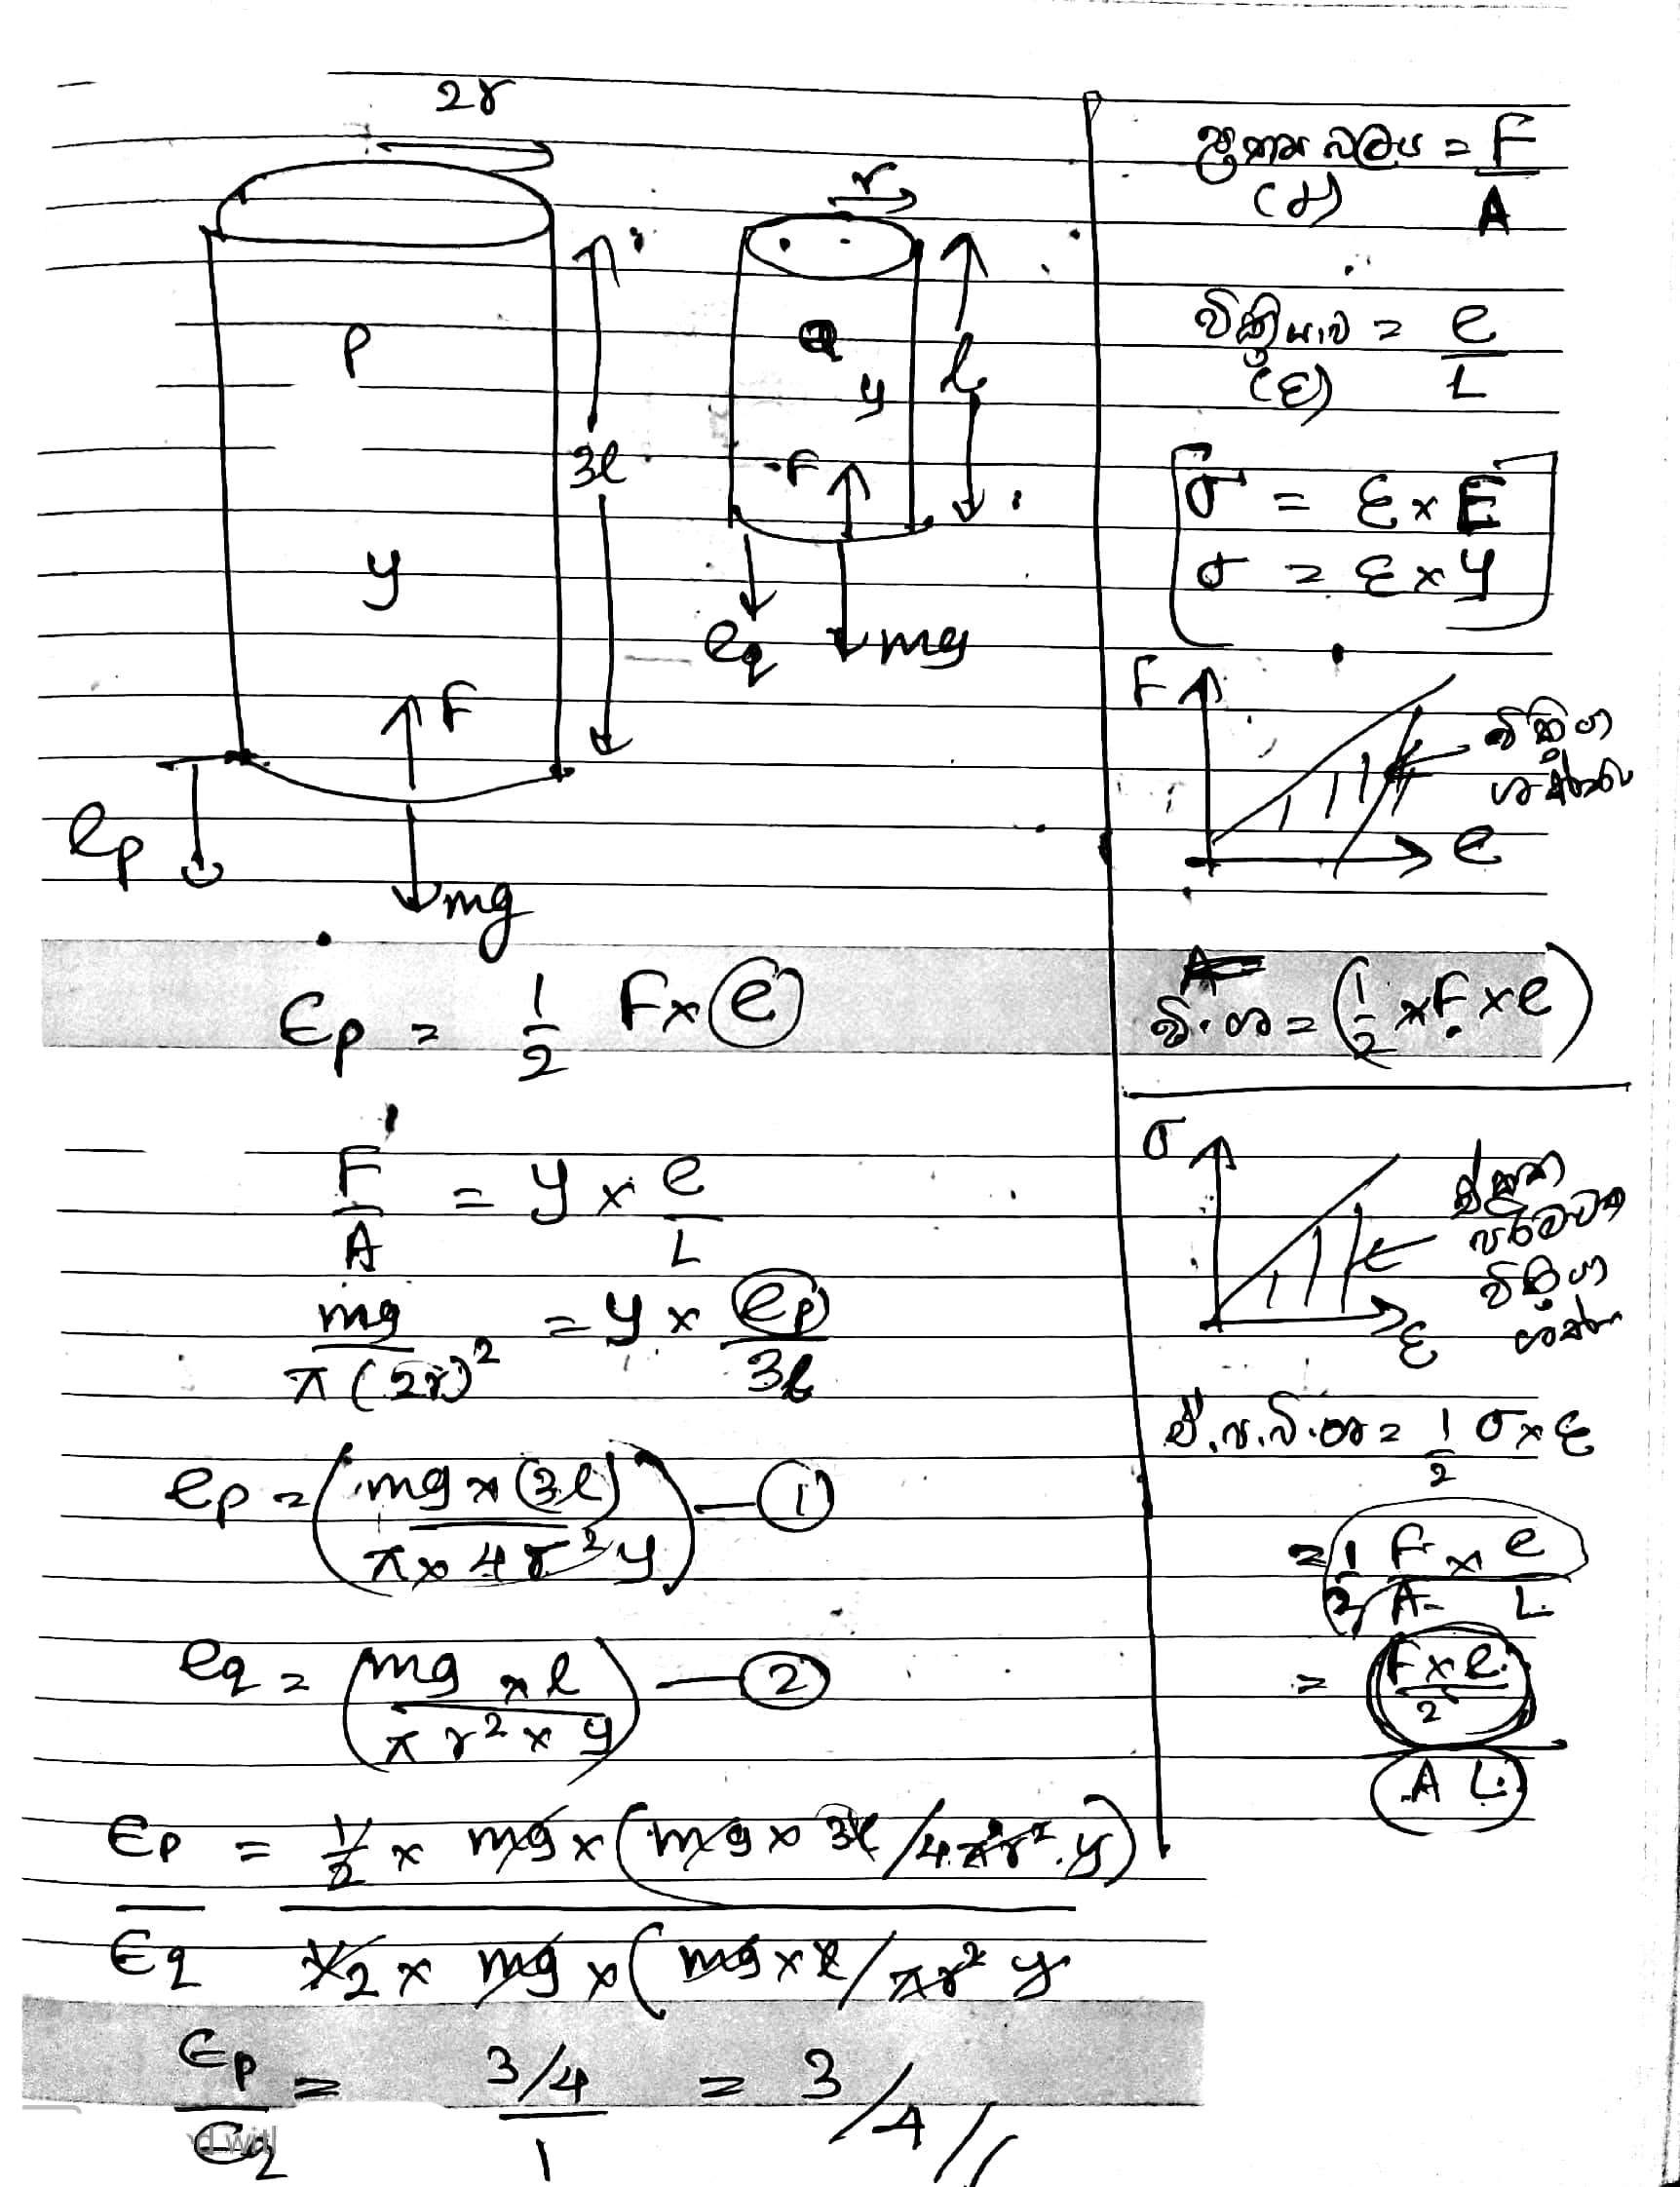 2r
r
P
y
3l
F
eₚ
mg
Q
y
l
F
e_q
mg
Eₚ = 1/2 F×e
F/A = y × e/L
mg/π(2r)² = y × eₚ/3l
eₚ = (mg × (3l)/π × 4r² y) — ①
e_q = (mg × l/π r² × y) — ②
Eₚ/E_q = 1/2 × mg × (mg × 3l/4πr².y)/1/2 × mg × (mg × l/πr² y
Eₚ/E_q = 3/4/1 = 3/4//
ප්‍රත්‍යාබලය = F/A
(σ)
වික්‍රියාව = e/L
(ε)
σ = ε × E
σ = ε × y
F
වික්‍රියා
ශක්තිය
e
වි.ශ = (1/2 × F × e)
σ
ඒකක
පරිමාවක
වික්‍රියා
ශක්ති
ε
ඒ.ප.වි.ශ = 1/2 σ × ε
= 1/2 F/A × e/L
= F×e/2
A L